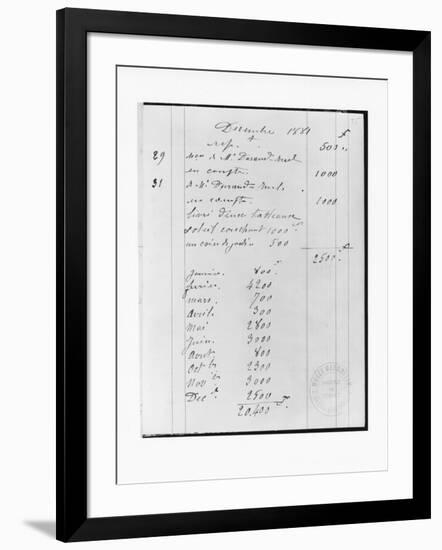 Decembre 1881 f
rep. 500
29 reçu de Mr. Durand-Ruel
en compte 1000
31 de Mr. Durand-Ruel
en compte 1000
livré deux tableaux
soleil couchant 1000
un coin de jardin 500
2500
Janvier. 800
fevrier. 4200
mars. 700
Avril. 300
Mai 2800
Juin. 3000
Aout 800
Oct bre 2300
Nov bre 3000
Dec 2500
20.400